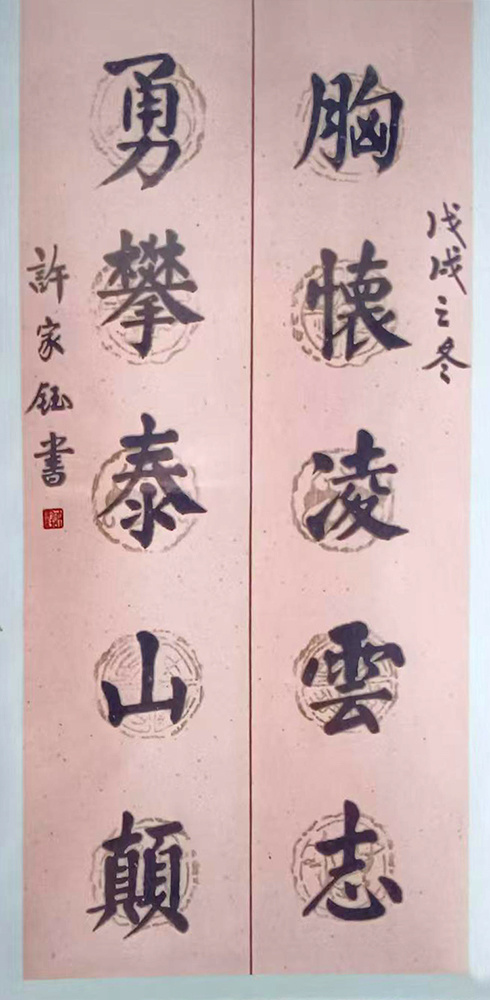 戊戌之冬
胸懷凌雲志
勇攀泰山顛
許家鈺書